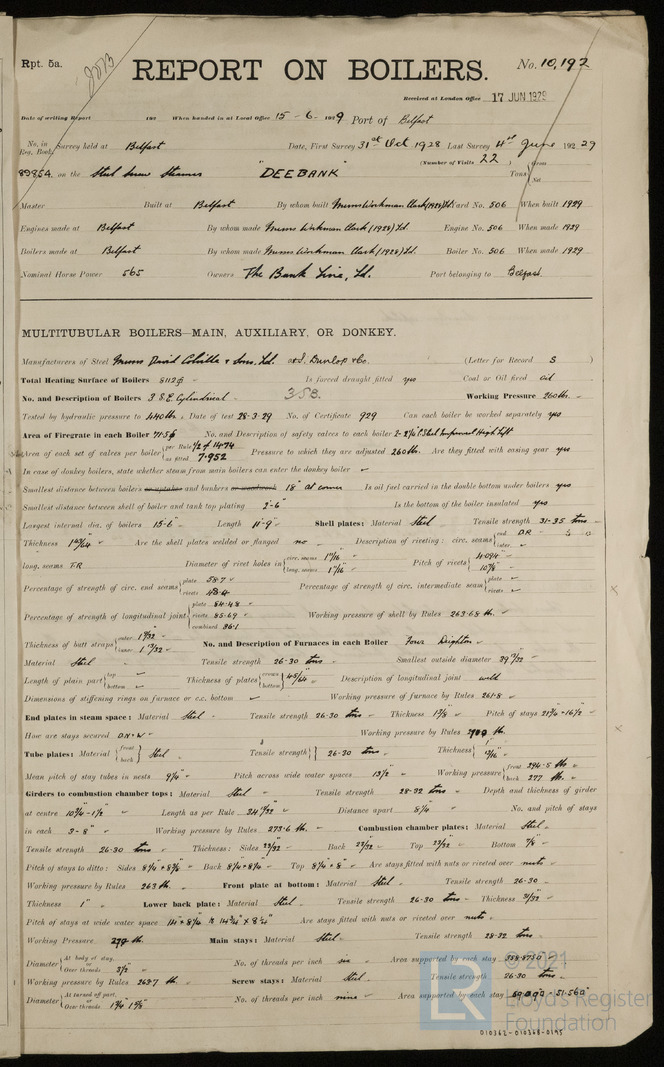 Rpt. 5a.
REPORT ON BOILERS.
No. 10,192
Received at London Office 17 JUN 1929
Date of writing Report 192 When handed in at Local Office 15 - 6 - 1929 Port of Belfast
No. in Reg. Book. Survey held at Belfast Date, First Survey 31st Oct 1928 Last Survey 4th June 1929
(Number of Visits 22)
89864 on the Steel Screw Steamer "DEEBANK" Tons { Gross Net
Master Built at Belfast By whom built Messrs Workman Clark (1928) Ld. Yard No. 506 When built 1929
Engines made at Belfast By whom made Messrs Workman Clark (1928) Ld. Engine No. 506 When made 1929
Boilers made at Belfast By whom made Messrs Workman Clark (1928) Ld. Boiler No. 506 When made 1929
Nominal Horse Power 565 Owners The Bank Line, Ld. Port belonging to Belfast
MULTITUBULAR BOILERS—MAIN, AUXILIARY, OR DONKEY.
Manufacturers of Steel Messrs David Colville & Sons, Ld. & J. Dunlop & Co. (Letter for Record S)
Total Heating Surface of Boilers Is forced draught fitted yes Coal or Oil fired oil
No. and Description of Boilers 3 S.E. Cylindrical 3SB. Working Pressure 260 lbs.
Tested by hydraulic pressure to 440 lbs. Date of test 28-3-29 No. of Certificate 929 Can each boiler be worked separately yes
Area of Firegrate in each Boiler No. and Description of safety valves to each boiler Improved High Lift
Area of each set of valves per boiler { per Rule as fitted 7.952 Pressure to which they are adjusted 260 lbs. Are they fitted with easing gear yes
In case of donkey boilers, state whether steam from main boilers can enter the donkey boiler
Smallest distance between boilers or uptakes and bunkers or woodwork 18" at corner Is oil fuel carried in the double bottom under boilers yes
Smallest distance between shell of boiler and tank top plating 2-6" Is the bottom of the boiler insulated yes
Largest internal dia. of boilers 15-6" Length 11-9" Shell plates: Material Steel Tensile strength 31-35 tons
Thickness Are the shell plates welded or flanged no Description of riveting: circ. seams { end D.R. inter.
long. seams T.R. Diameter of rivet holes in { circ. seams 1 7/16 long. seams 1 7/16 Pitch of rivets { 4.094 10 7/8
Percentage of strength of circ. end seams { plate 58.7 rivets 48.4 Percentage of strength of circ. intermediate seam { plate rivets
Percentage of strength of longitudinal joint { plate 84.48 rivets 85.69 combined 86.1 Working pressure of shell by Rules 263.68 lb.
Thickness of butt straps { outer inner No. and Description of Furnaces in each Boiler Four Deighton
Material Steel Tensile strength 26-30 tons Smallest outside diameter
Length of plain part { top bottom Thickness of plates { crown bottom 45/64 Description of longitudinal joint weld
Dimensions of stiffening rings on furnace or c.c. bottom Working pressure of furnace by Rules 261.8
End plates in steam space: Material Steel Tensile strength 26-30 tons Thickness Pitch of stays
How are stays secured D.N.W. Working pressure by Rules
Tube plates: Material { front back } Steel Tensile strength { 26-30 tons Thickness {
Mean pitch of stay tubes in nests Pitch across wide water spaces 13 1/2 Working pressure { front 294.5 lb back 277 lb.
Girders to combustion chamber tops: Material Steel Tensile strength 28-32 tons Depth and thickness of girder
at centre 10 3/4 - 1 1/2 Length as per Rule Distance apart 8 1/4 No. and pitch of stays
in each 3 - 8" Working pressure by Rules 273.6 lb. Combustion chamber plates: Material Steel
Tensile strength 26-30 tons Thickness: Sides 23/32 Back 23/32 Top 23/32 Bottom 7/8
Pitch of stays to ditto: Sides Back Top Are stays fitted with nuts or riveted over nuts
Working pressure by Rules 263 lb. Front plate at bottom: Material Steel Tensile strength 26-30
Thickness 1" Lower back plate: Material Steel Tensile strength 26-30 tons Thickness 31/32
Pitch of stays at wide water space Are stays fitted with nuts or riveted over nuts
Working Pressure Main stays: Material Steel Tensile strength 28-32 tons
Diameter { At body of stay, or Over threads 3 1/2 No. of threads per inch six Area supported by each stay
Working pressure by Rules 269.7 lb. Screw stays: Material Steel Tensile strength 26-30 tons
Diameter { At turned off part, or Over threads No. of threads per inch nine Area supported by each stay
© 2021
LR
Lloyd's Register
Foundation
010362-010368-0195